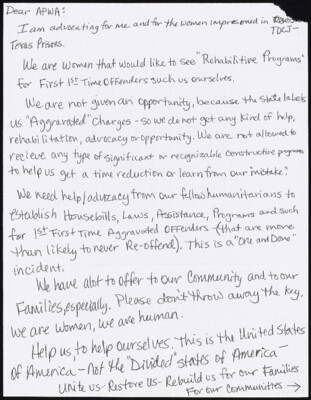 Dear APWA:
I am advocating for me and for the women impresoned in
TDCJ-
Texas Prisons.
We are women that would like to see "Rehabilitive Programs"
for First 1st Time Offenders such us ourselves.
We are not given an opportunity, because the state labels
us "Aggravated" Charges - so we do not get any kind of help,
rehabilitation, advocacy or opportunity. We are not allowed to
recieve any type of significant or recognizable constructive programs
to help us get a time reduction or learn from our mistake?
We need help/advocacy from our fellow humanitarians to
establish Housebills, Laws, Assistance, Programs and such
for 1st First Time Aggravated Offenders - (that are more
than likely to never Re-offend). This is a "One and Done"
incident.
We have alot to offer to our Community and to our
Families, especially. Please don't throw away the key.
We are women, we are human.
Help us, to help ourselves. This is the United States
of America - Not the "Divided" states of America -
Unite us - Restore Us - Rebuild us for our Families
For our Communities →